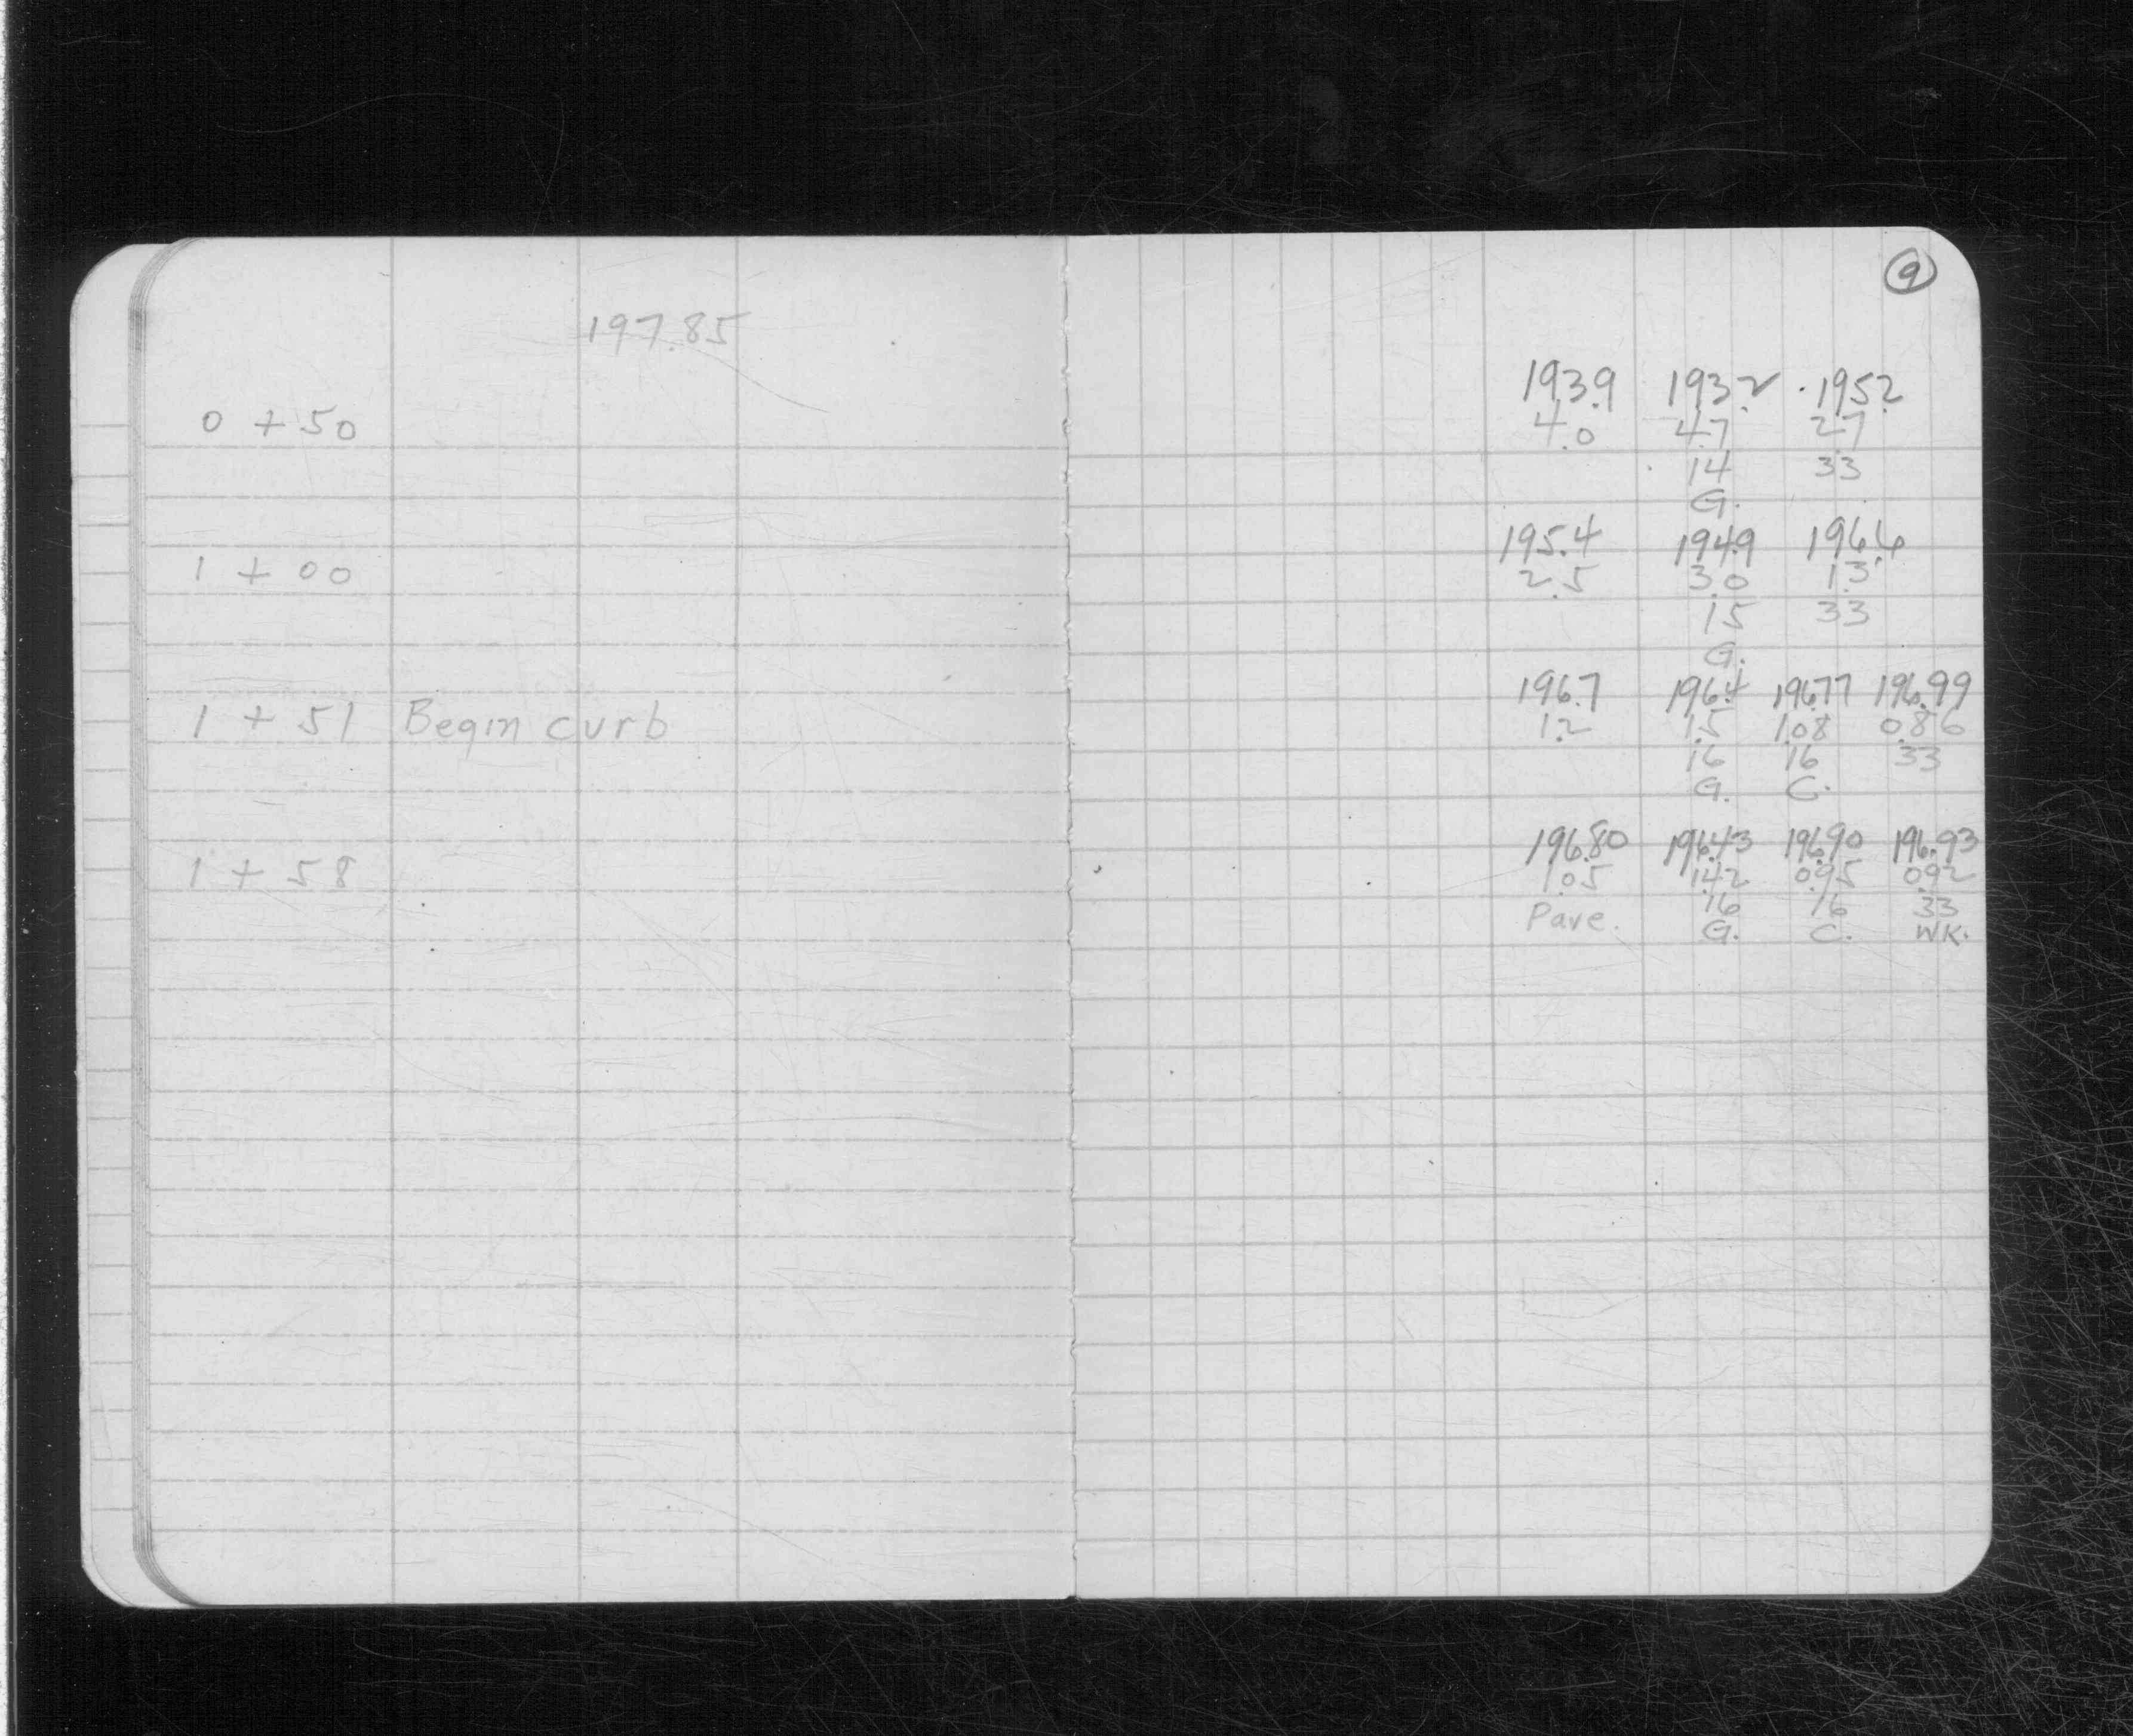 9
197.85
193.9 193.2 195.2
0 + 50 4.0 4.7 2.7
14 33
G.
195.4 194.9 196.6
1 + 00 2.5 3.0 1.3
15 33
G.
196.7 196.4 196.77 196.99
1 + 51 Begin curb 1.2 1.5 1.08 0.86
16 16 33
G. C.
196.80 196.43 196.90 196.93
1 + 58 1.05 1.42 0.95 0.92
Pave. 16 16 33
G. C. WK.